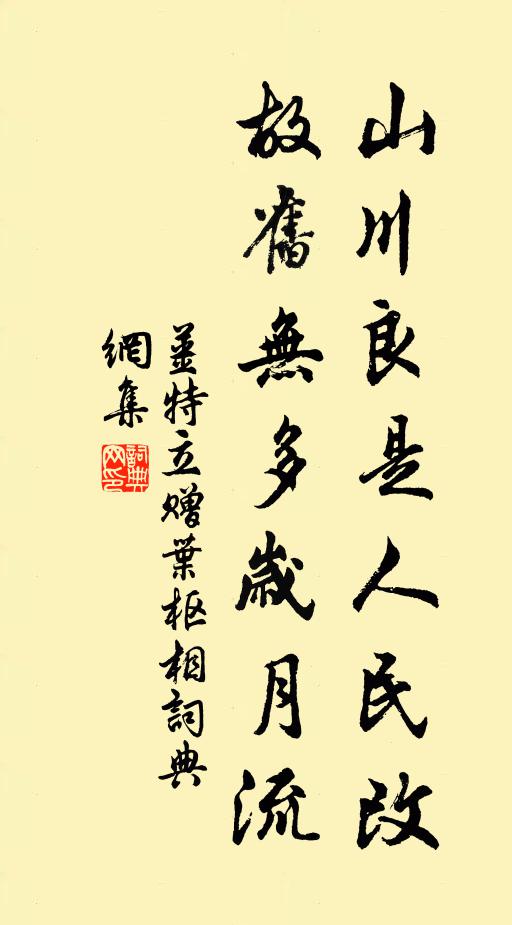 山川良是人民改
故舊無多歲月流
姜特立赠葉枢相詞典
網集
詞典
网印